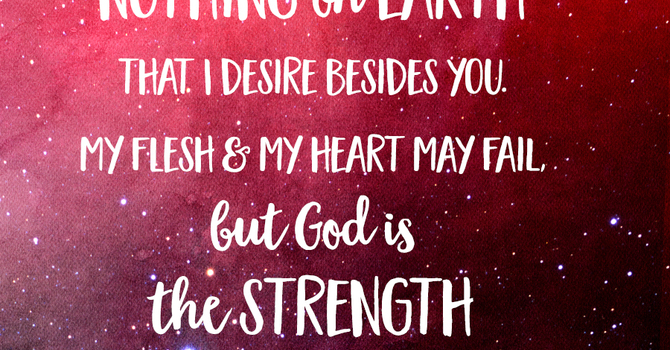 NOTHING on EARTH
THAT I DESIRE BESIDES YOU.
MY FLESH & MY HEART MAY FAIL,
but God is
the STRENGTH